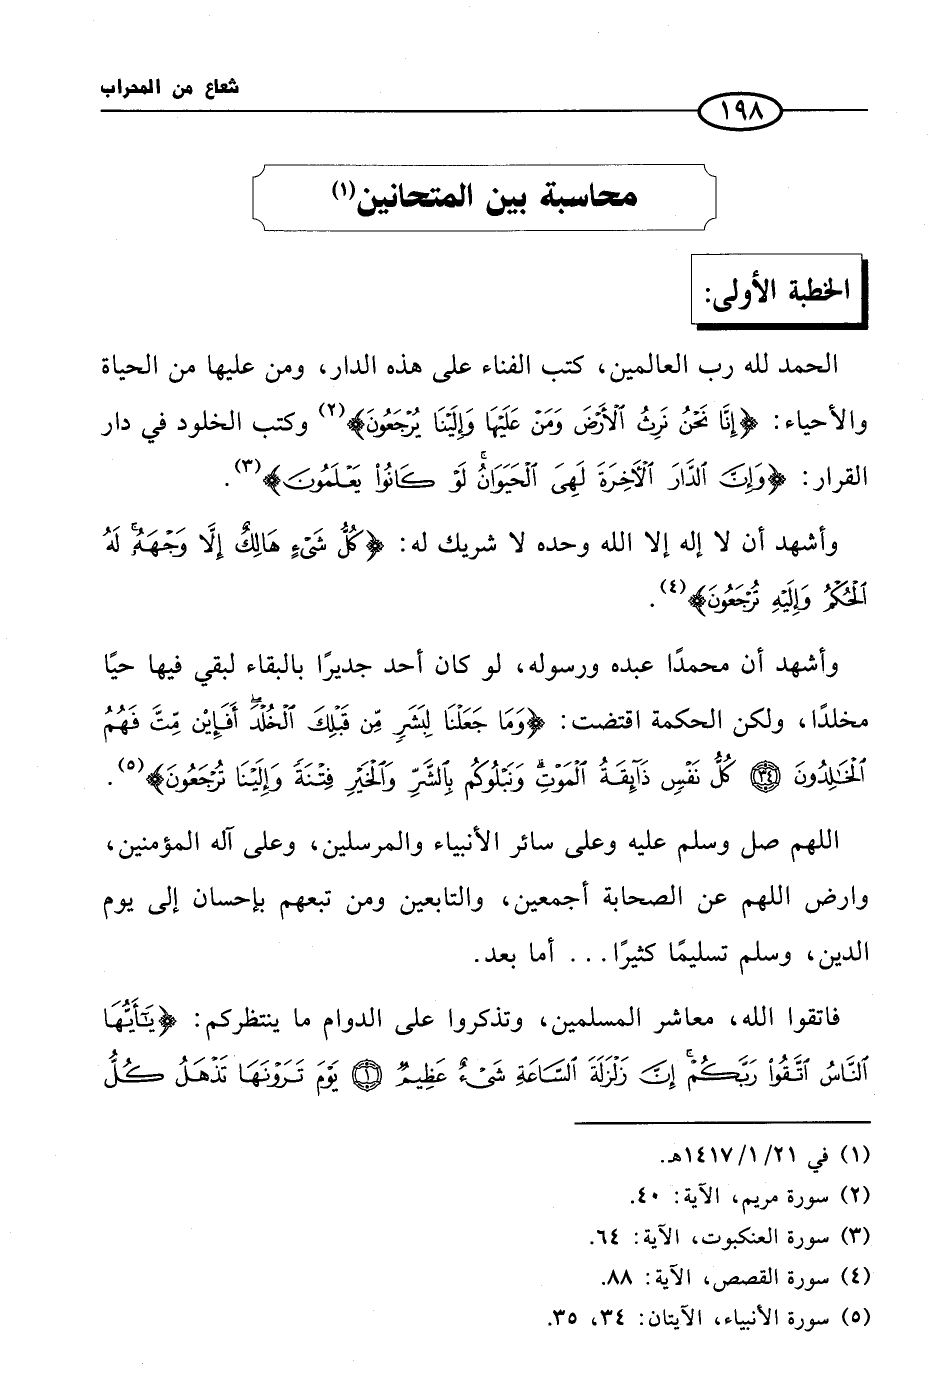 شعاع من المحراب
١٩٨
محاسبة بين المتحانين(١)
الخطبة الأولى:
الحمد لله رب العالمين، كتب الفناء على هذه الدار، ومن عليها من الحياة
والأحياء: ﴿إِنَّا نَحْنُ نَرِثُ ٱلْأَرْضَ وَمَنْ عَلَيْهَا وَإِلَيْنَا يُرْجَعُونَ﴾(٢) وكتب الخلود في دار
القرار: ﴿وَإِنَّ ٱلدَّارَ ٱلْأَخِرَةَ لَهِىَ ٱلْحَيَوَانُۚ لَوْ كَانُوا۟ يَعْلَمُونَ﴾(٣).
وأشهد أن لا إله إلا الله وحده لا شريك له: ﴿كُلُّ شَىْءٍ هَالِكٌ إِلَّا وَجْهَهُۥۚ لَهُ
ٱلْحُكْمُ وَإِلَيْهِ تُرْجَعُونَ﴾(٤).
وأشهد أن محمدًا عبده ورسوله، لو كان أحد جديرًا بالبقاء لبقي فيها حيًا
مخلدًا، ولكن الحكمة اقتضت: ﴿وَمَا جَعَلْنَا لِبَشَرٍ مِّن قَبْلِكَ ٱلْخُلْدَۖ أَفَإِي۟ن مِّتَّ فَهُمُ
ٱلْخَٰلِدُونَ ٣٤ كُلُّ نَفْسٍ ذَآئِقَةُ ٱلْمَوْتِۗ وَنَبْلُوكُم بِٱلشَّرِّ وَٱلْخَيْرِ فِتْنَةًۖ وَإِلَيْنَا تُرْجَعُونَ﴾(٥).
اللهم صل وسلم عليه وعلى سائر الأنبياء والمرسلين، وعلى آله المؤمنين،
وارض اللهم عن الصحابة أجمعين، والتابعين ومن تبعهم بإحسان إلى يوم
الدين، وسلم تسليمًا كثيرًا... أما بعد.
فاتقوا الله، معاشر المسلمين، وتذكروا على الدوام ما ينتظركم: ﴿يَٰٓأَيُّهَا
ٱلنَّاسُ ٱتَّقُوا۟ رَبَّكُمْۚ إِنَّ زَلْزَلَةَ ٱلسَّاعَةِ شَىْءٌ عَظِيمٌ ١ يَوْمَ تَرَوْنَهَا تَذْهَلُ كُلُّ
(١) في ١٤١٧/١/٢١هـ.
(٢) سورة مريم، الآية: ٤٠.
(٣) سورة العنكبوت، الآية: ٦٤.
(٤) سورة القصص، الآية: ٨٨.
(٥) سورة الأنبياء، الآيتان: ٣٤، ٣٥.